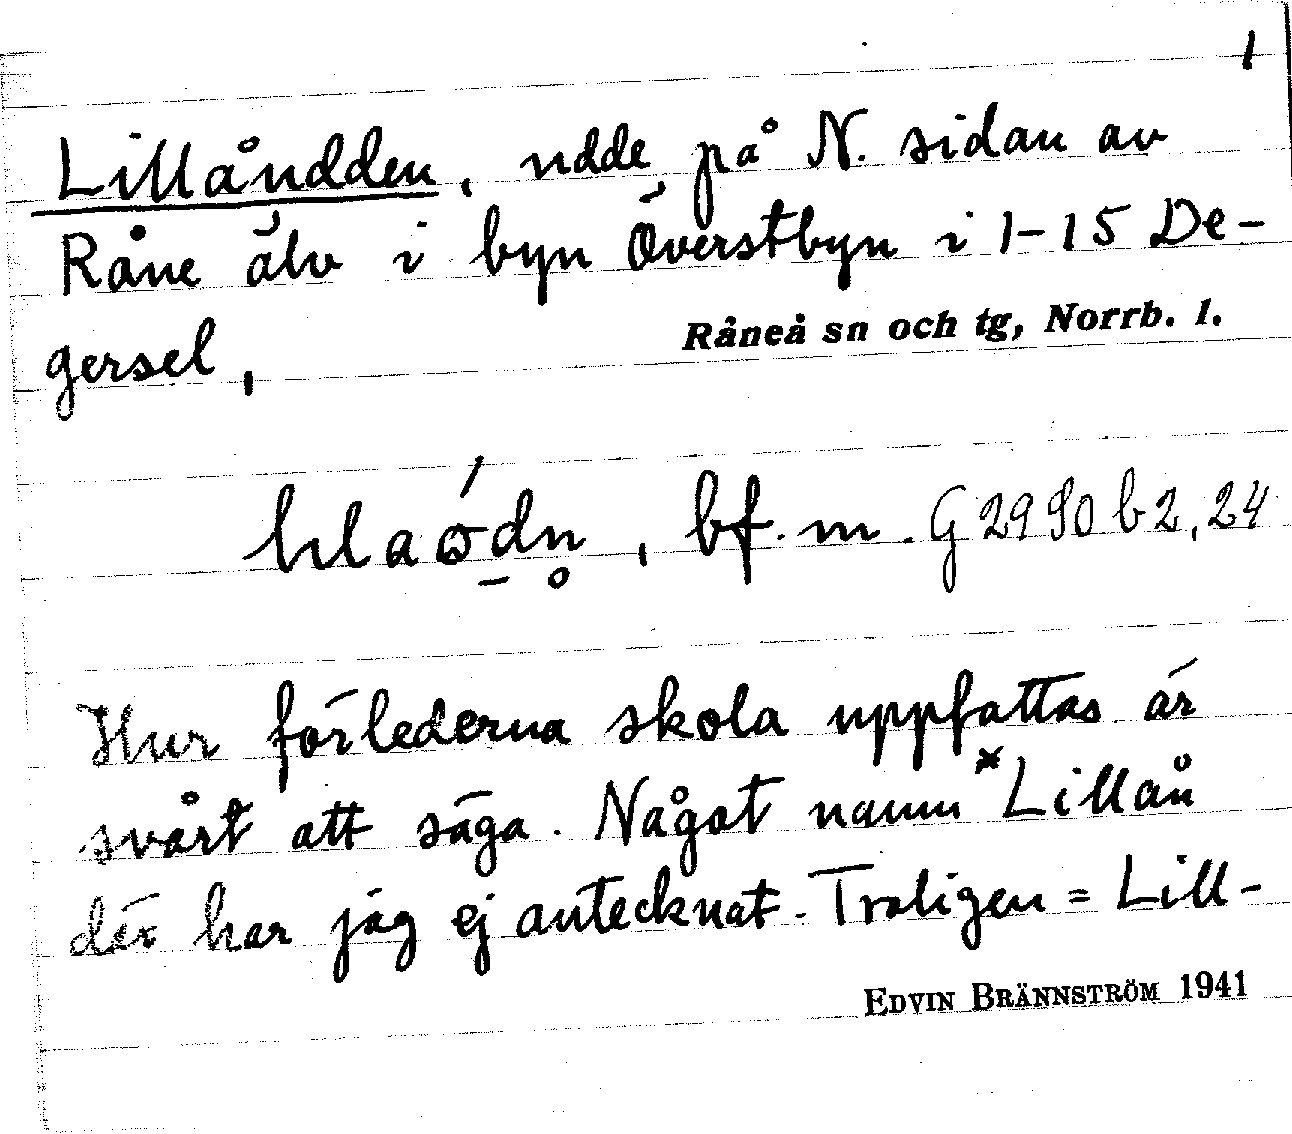 1
Lillåudden, udde på N. sidan av
Råne älv i byn Överstbyn i 1-15 De-
gersel,
Råneå sn och tg, Norrb. l.
bf. m. G 2990 b 2, 24
Hur förlederna skola uppfattas är
svårt att säga. Något namn *Lillån
där har jag ej antecknat. Troligen = Lill-
EDVIN BRÄNNSTRÖM 1941